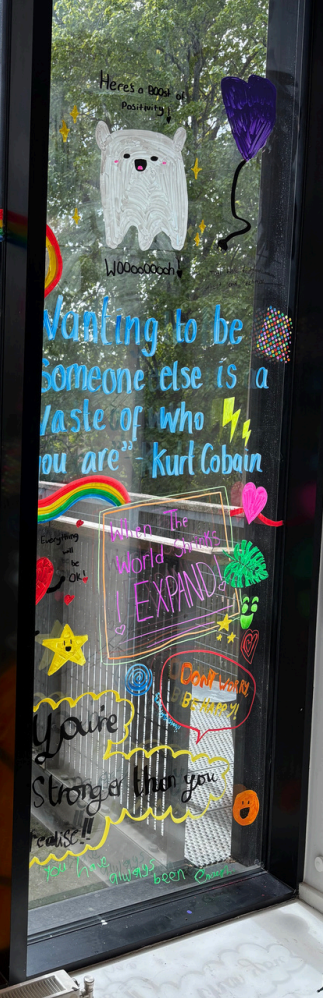 Here's a BOOst of
Positivity!
WOOOOOOOh
Wanting to be
Someone else is a
Waste of who
you are" - Kurt Cobain
Everything
will
be
OK!
When The
World Shrinks
I EXPAND!
Don't worry
Be Happy!
You're
Stronger than you
realise!!
You has always
been enough